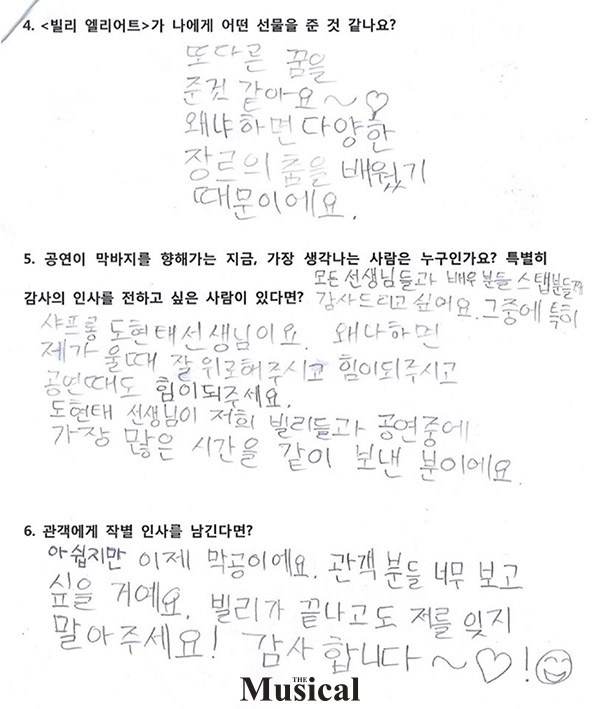 4. <빌리 엘리어트>가 나에게 어떤 선물을 준 것 같나요?
또다른 꿈을
준것 같아요~♡
왜냐하면 다양한
장르의 춤을 배웠기
때문이에요.
5. 공연이 막바지를 향해가는 지금, 가장 생각나는 사람은 누구인가요? 특별히
감사의 인사를 전하고 싶은 사람이 있다면?
모든 선생님들과 배우분들 스탭분들께
감사드리고 싶어요. 그중에 특히
샤프롱 도현태선생님이요. 왜냐하면
제가 울때 잘 위로해주시고 힘이되주시고
공연때도 힘이되주세요.
도현태 선생님이 저희 빌리들과 공연중에
가장 많은 시간을 같이 보낸 분이에요.
6. 관객에게 작별 인사를 남긴다면?
아쉽지만 이제 막공이에요. 관객 분들 너무 보고
싶을 거예요. 빌리가 끝나고도 저를 잊지
말아주세요! 감사합니다~♡!
THE
Musical